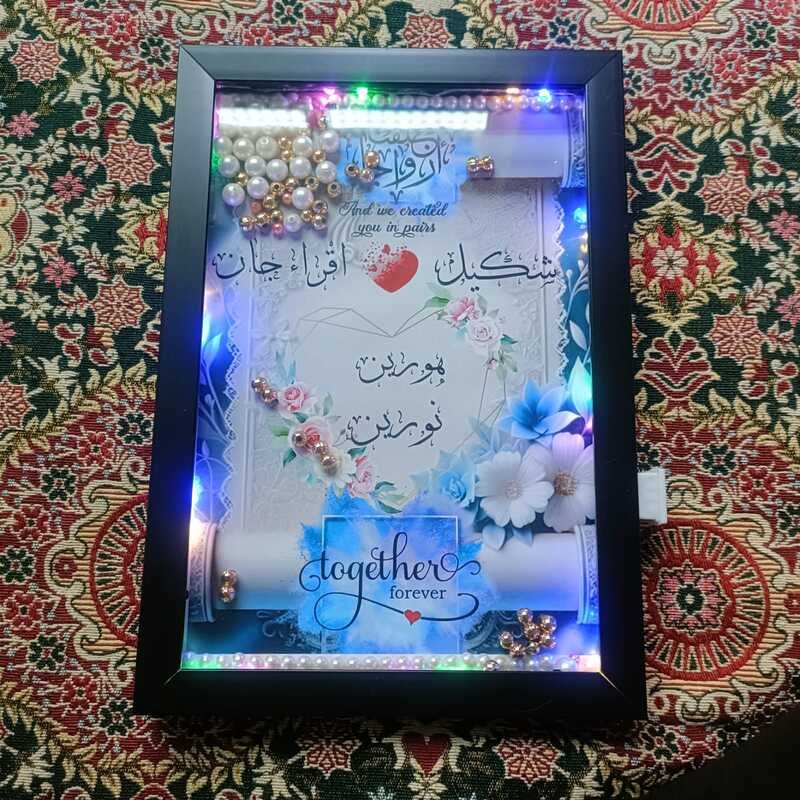 أزواجا
And we created
you in pairs
شکیل اقراء جان
ہورین
نورین
together
forever